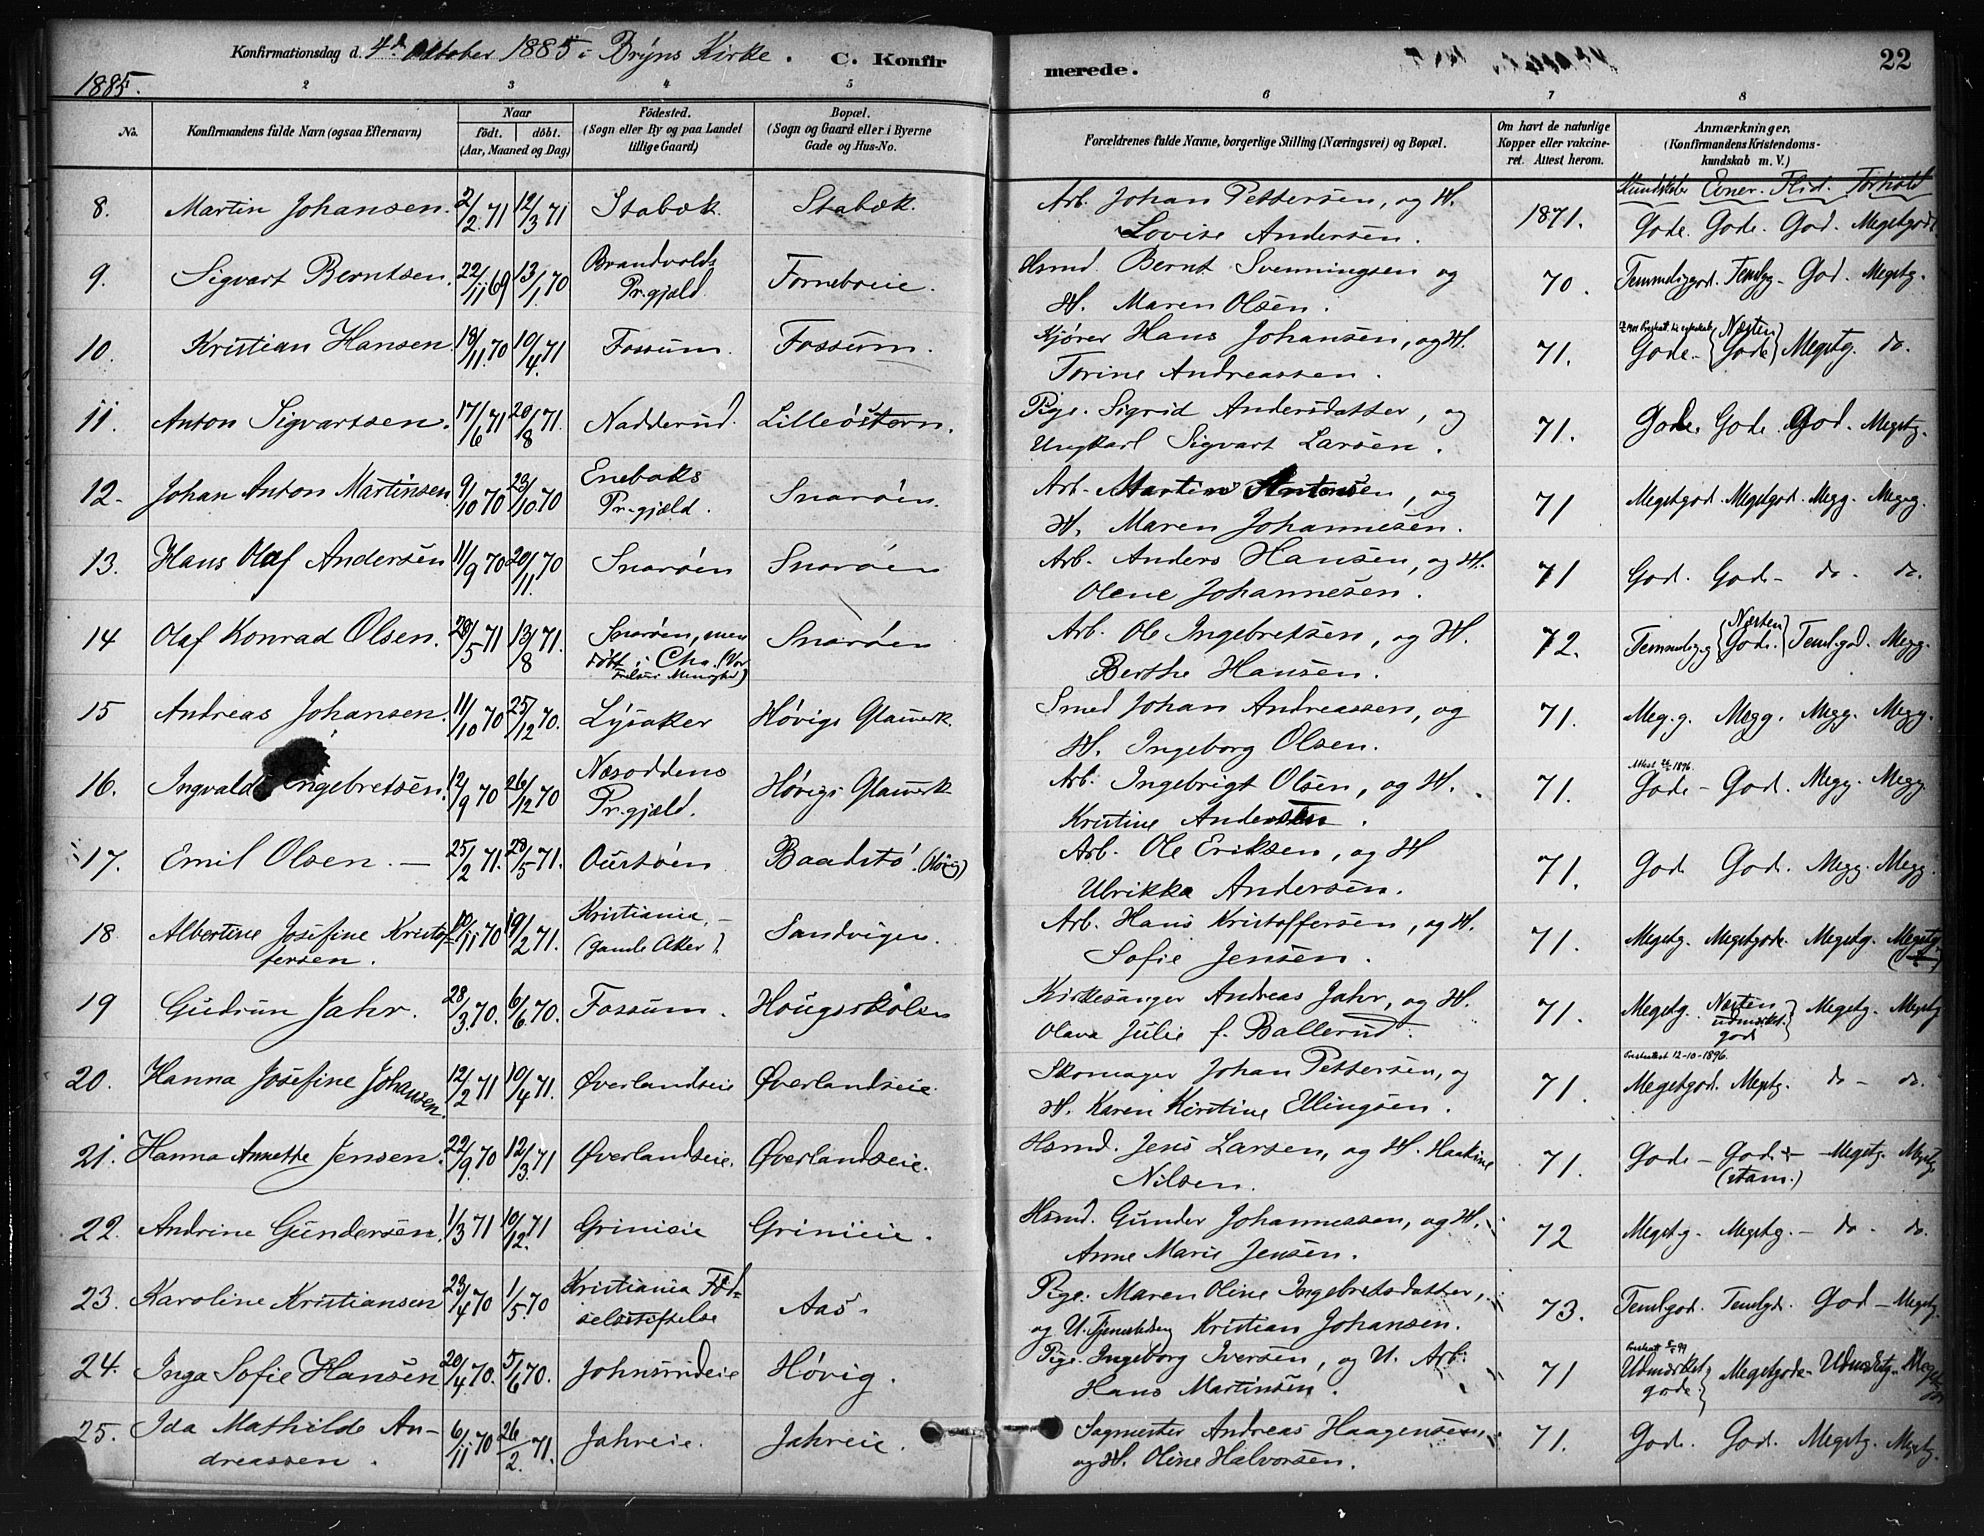 Konfirmationsdag d. 4de Oktober 1885 i Bryns Kirke. C. Konfir merede. 22
1885.
2 3 4 5 6 7 8
No. Konfirmandens fulde Navn (ogsaa Efternavn) Naar født. døbt. (Aar, Maaned og Dag) Fødested. (Sogn eller By og paa Landet tillige Gaard) Bopæl. (Sogn og Gaard eller i Byerne Gade og Hus-No. Forældrenes fulde Navne, borgerlige Stilling (Næringsvei) og Bopæl. Om havt de naturlige Kopper eller vakcineret. Attest herom. Anmærkninger, (Konfirmandens Kristendomskundskab m. V.)
Kundskaber Evner. Flid. Forhold
8. Martin Johansen. 2/2 71 12/3 71 Stabæk. Stabæk. Arb. Johan Pettersen, og H. Lovise Andersen. 1871. Gode. Gode. God. Megetgodt.
9. Sigvart Berntsen. 22/11 69 13/1 70 Brandvolds Pr.gjæld Forneboeie. Hsmd. Bernt Svenningsen og H. Maren Olsen. 70. Temmeliggod. Temlg. God. Megtg.
10. Kristian Hansen. 18/11 70 10/4 71 Fossum. Fossum. Kjører Hans Johansen, og H. Torine Andreassen. 71. Gode {Næsten Gode} Megtg. do.
11. Anton Sigvartsen. 17/6 71 20/8 71. Nadderud. Lilleøstern. Pige. Sigrid Andersdatter, og Ungkarl Sigvart Larsen. 71. Gode. Gode. God. Megtg.
12. Johan Anton Martinsen 9/10 70 23/10 70 Enebaks Pr.gjæld. Snarøen. Arb. Martin Antonsen, og H. Maren Johannesen. 71 Megetgod. Megetgod. Megg. Megg.
13. Hans Olaf Andersen 11/9 70 20/11 70 Snarøen Snarøen Arb. Anders Hansen, og H. Olene Johannesen. 71 God. God. do. do.
14 Olaf Konrad Olsen. 29/5 71 13/8 71. Snarøen, men døbt i Cha. (Vor Frelsers Menighed) Snarøen Arb. Ole Ingebretsen, og H. Berthe Hansen. 72. Temmelig g {Næsten God.} Temlgod. Megg.
15 Andreas Johansen. 11/10 70 25/12 70. Lysaker Høvigs Glasværk Smed Johan Andreassen, og H. Ingeborg Olsen. 71. Meg.g. Megg. Megg. Megg.
16. Ingvald Engebretsen. 12/9 70 26/12 70 Næsoddens Pr.gjæld. Høvigs Glasværk Arb. Ingebrigt Olsen, og H. Kristine Andersen. 71. Gode - God. Megg. Megg.
17. Emil Olsen. 25/2 71. 28/5 71. Oustøen Baadstø. (Høvig) Arb. Ole Eriksen, og H Ulrikka Andersen. 71. God God. Megg. Megg.
18 Albertine Josefine Kristoffersen. 10/11 70 19/2 71. Kristiania. (Gamle Aker). Sandvigen. Arb. Hans Kristoffersen, og H. Sofie Jensen. 71. Megetg. Megetgode. Megetg. Megetg.
19 Gudrun Jahr. 28/3 70. 6/6 70. Fossum. Hougsskolen Kirkesanger Andreas Jahr, og H. Olava Julie f. Ballerud. 71. Megetg. Næsten udmærket god} Megetg. Megetg
20. Hanna Josefine Johansen. 12/2 71 10/4 71. Øverlandseie Øverlandseie. Skomager Johan Pettersen, og H. Karen Kirstine Ellingsen. 71. Presteattest 12-10-1896. Megetgod. Megtg. do - do.
21. Hanna Annette Jensen. 22/9 70 12/3 71 Øverlandseie. Øverlandseie. Hsmd. Jens Larsen, og H. Haakine Nilsen. 71. Gode - God. (stam.) - Megetg. Megtg
22. Andrine Gundersen. 1/3 71 10/12 71 Grinieie Grinieie. Hsmd. Gunder Johannessen, og H. Anne Marie Jensen. 72 Megetg. Megetg. - do do.
23. Karoline Kristiansen 23/4 70 1/5 70 Kristiania Fødselsstiftelse Aas. Pige. Maren Oline Ingebretsdatter, og U. Tjenestedreng Kristian Johansen. 73. Temlgod. Temlgd. God - Megtg.
24. Inga Sofie Hansen 20/4 70. 5/6 70. Johnsrudeie Høvig. Pige. Ingeborg Iversen, og U. Arb. Hans Martinsen. 71 Udmærket gode} Megetgode - Udmærktg. Meget
25. Ida Mathilde Andreassen. 6/11 70 26/2 71. Jahreie. Jahreie. Sagmester Andreas Haagensen, og H. Oline Halvorsen. 71. God. God. Megetg. Megtg.